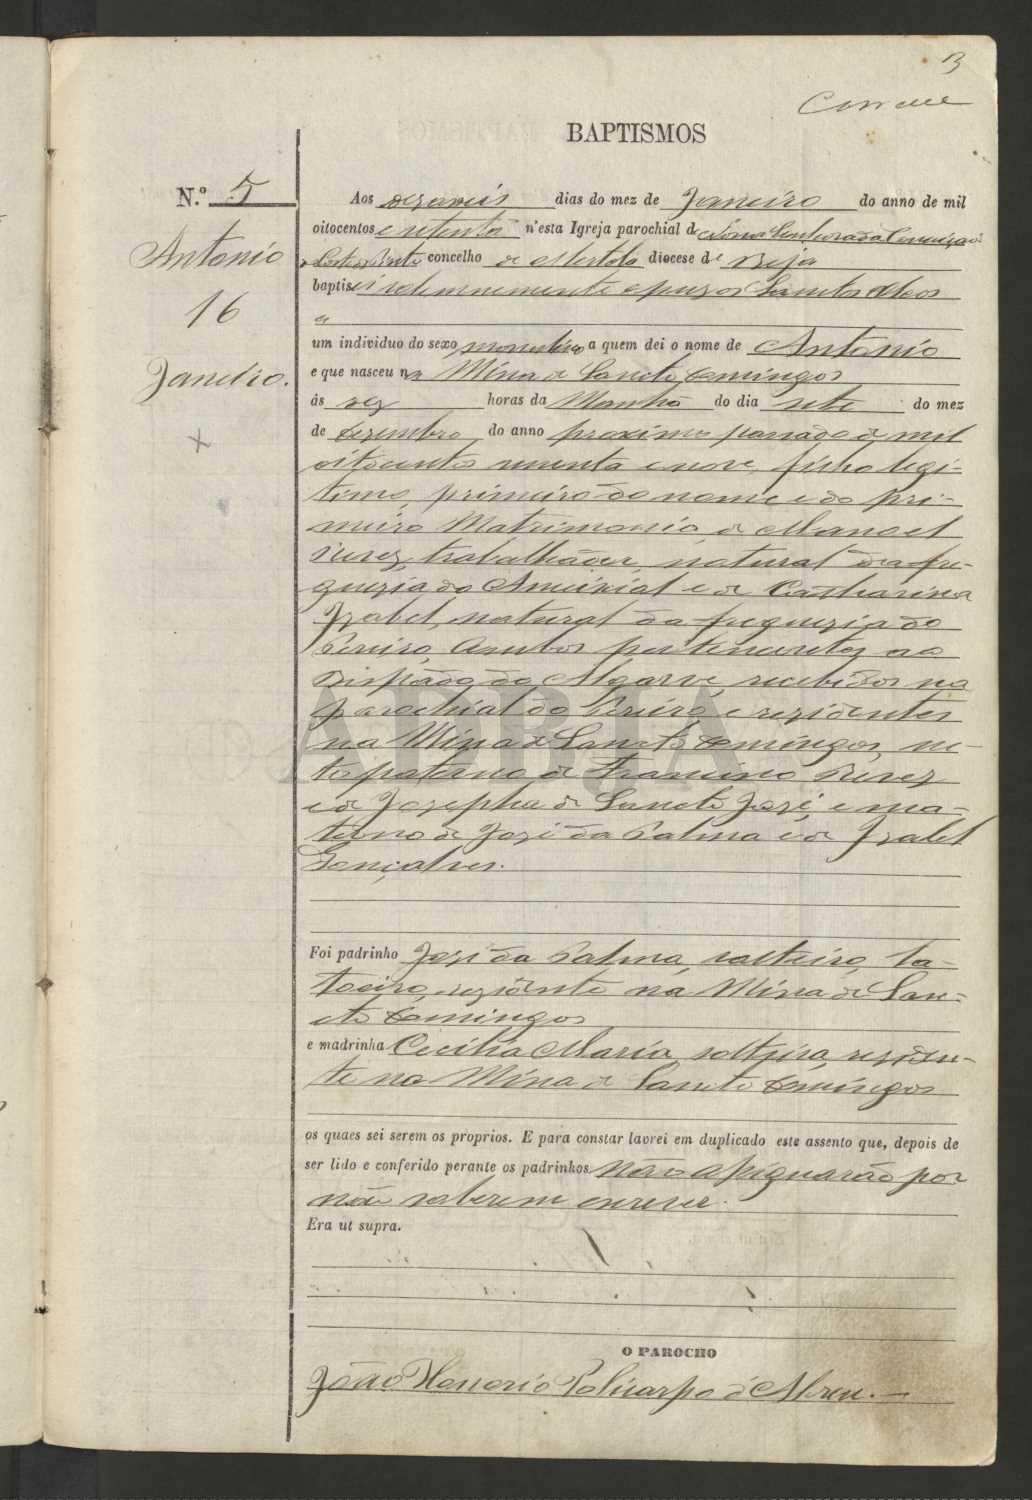 3
BAPTISMOS
N.º 5
Antonio
16
Janeiro.
Aos dezaseis dias do mez de Janeiro do anno de mil
oitocentos e setenta n'esta Igreja parochial de Nossa Senhora da Conceição
concelho de Mertola diocese de Beja
baptisei solemnemente e puz os Sanctos Oleos
a
um individuo do sexo masculino a quem dei o nome de Antonio
e que nasceu na Mina de Sancto Domingos
ás dez horas da Manhã do dia sete do mez
de Dezembro do anno proximo passado de mil
oitocentos sessenta e nove, filho legi-
timo, primeiro do nome e do pri-
meiro Matrimonio, de Manoel
Perez, trabalhador, natural da fre-
guezia do Ameixial e de Catharina
Izabel, natural da freguezia do
Pereiro, Ambos pertencentes ao
Bispado do Algarve, recebidos na
parochial do Pereiro, e rezidentes
na Mina de Sancto Domingos, ne-
to paterno de Francisco Perez
e de Jozepha de Sancto Jozé, e ma-
terno de Jozé da Palma e de Izabel
Gonçalves.
Foi padrinho Jozé da Palma, solteiro,
rezidente na Mina de San-
cto Domingos
e madrinha Cecilia Maria, solteira, reziden-
te na Mina de Sancto Domingos
os quaes sei serem os proprios. E para constar lavrei em duplicado este assento que, depois de
ser lido e conferido perante os padrinhos não assignarão por
não saberem escrever.
Era ut supra.
O PAROCHO
João Honorio Policarpo d'Abreu.